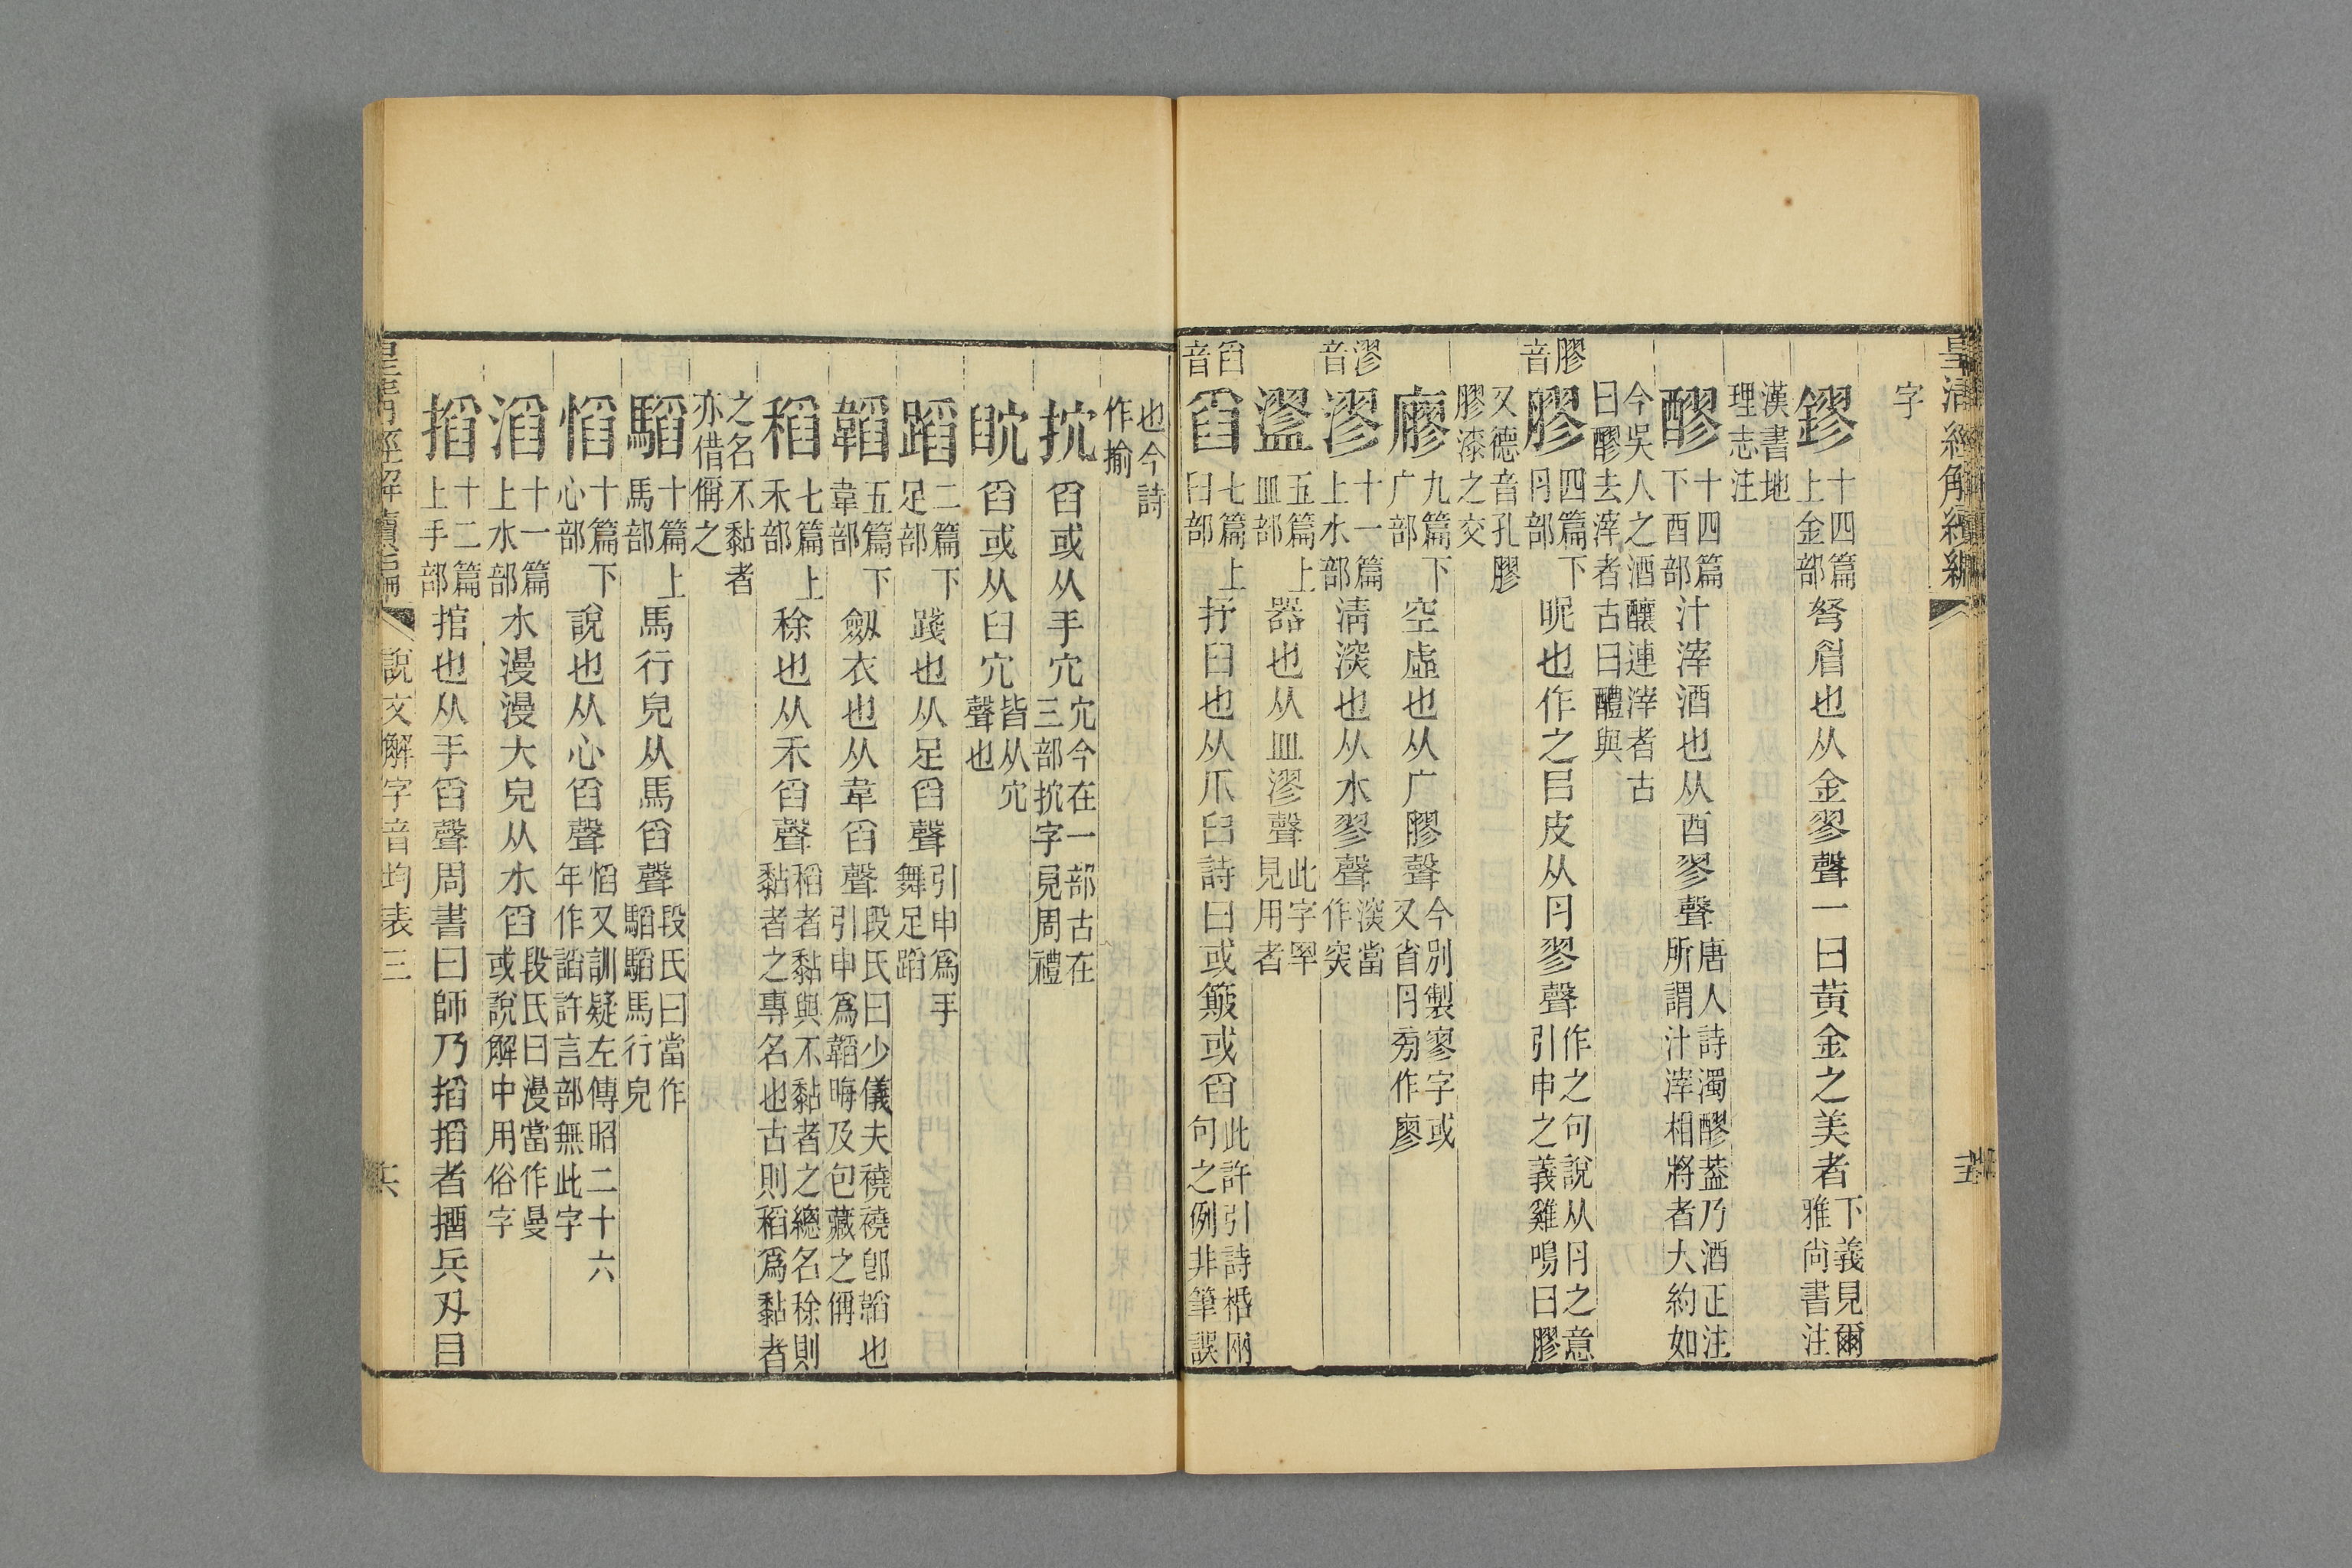 皇淸經解續編
字
鏐十四篇上金部弩眉也从金翏聲一曰黃金之美者下義見爾雅尚書注
漢書地理志注
醪十四篇下酉部汁滓酒也从酉翏聲唐人詩濁醪葢乃酒正注所謂汁滓相將者大約如
今吳人之酒釀連滓者古曰醪去滓者古曰醴與
膠音膠四篇下肉部昵也作之㠯皮从肉翏聲作之句說从肉之意引申之義雞鳴曰膠
又德音孔膠膠漆之交
廫九篇下广部空虛也从广膠聲今別製寥字或又省肉旁作廖
漻音漻十一篇上水部淸湥也从水翏聲湥當作突
盪五篇上皿部器也从皿漻聲此字罕見用者
舀音舀七篇上臼部抒臼也从爪臼詩曰或簸或舀此許引詩栝兩句之例非筆誤
也今詩作揄
抭舀或从手宂宂今在一部古在三部抭字見周禮
㲽舀或从臼宂皆从宂聲也
蹈二篇下足部踐也从足舀聲引申爲手舞足蹈
韜五篇下韋部劔衣也从韋舀聲段氏曰少儀夫襓襓卽韜也引申爲韜晦及包藏之偁
稻七篇上禾部稌也从禾舀聲稻者黏與不黏者之總名稌則黏者之專名也古則稻爲黏者
之名不黏者亦借偁之
騊十篇上馬部馬行皃从馬舀聲段氏曰當作騊騊馬行皃
慆十篇下心部說也从心舀聲慆又訓疑左傳昭二十六年作諂許言部無此字
滔十一篇上水部水漫漫大皃从水舀段氏曰漫當作曼或說解中用俗字
搯十二篇上手部捾也从手舀聲周書曰師乃搯搯者搯兵刃目
皇淸經解續編 說文解字音均表三